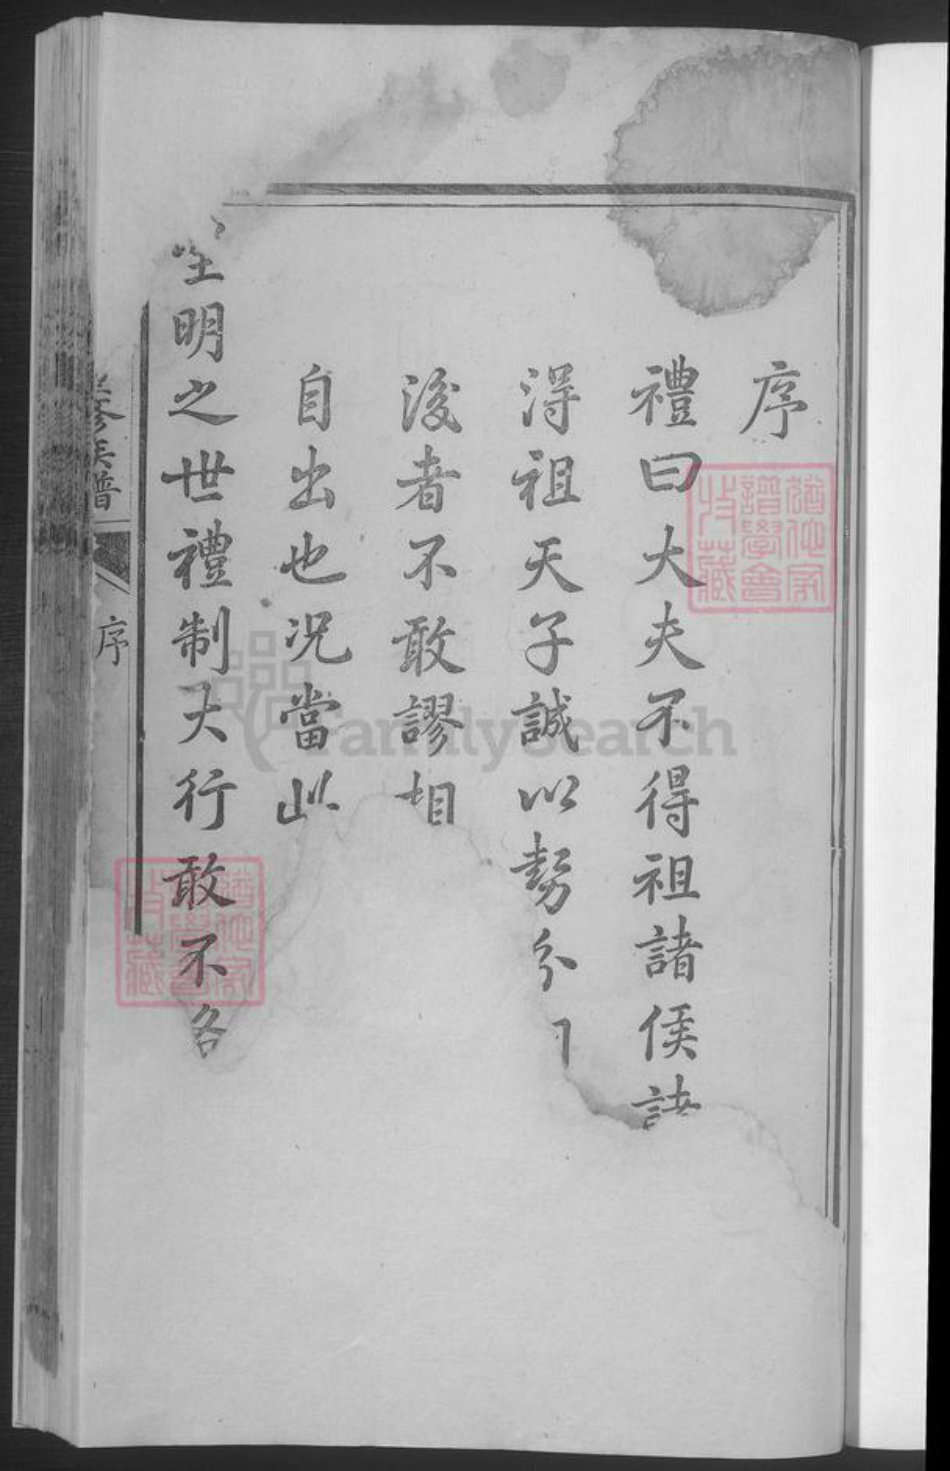 序
禮曰大夫不得祖諸侯諸
淂祖天子誠以勢分
後者不敢謬相
自出也況當此
聖明之世禮制大行敢不各
修族譜
序
譜學會
收藏
FamilySearch